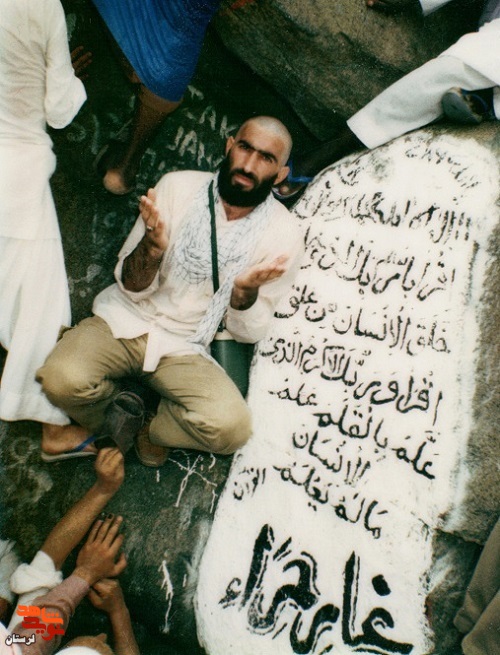 لا اله الا الله محمد رسول
اقرا باسم ربك الذي
خلق الانسان من علق
اقرا وربك الاكرم الذي
علم بالقلم علم
الانسان
مالم يعلم
غار حراء
نوید شاهد
لرستان